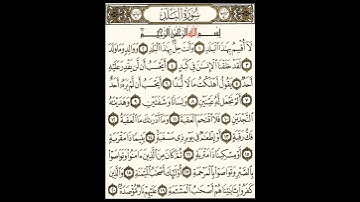 سُورَةُ البَلَدِ
بِسْمِ ٱللَّهِ ٱلرَّحْمَٰنِ ٱلرَّحِيمِ
لَآ أُقْسِمُ بِهَٰذَا ٱلْبَلَدِ ١ وَأَنتَ حِلٌّۢ بِهَٰذَا ٱلْبَلَدِ ٢ وَوَالِدٍ وَمَا وَلَدَ
٣ لَقَدْ خَلَقْنَا ٱلْإِنسَٰنَ فِى كَبَدٍ ٤ أَيَحْسَبُ أَن لَّن يَقْدِرَ عَلَيْهِ
أَحَدٌ ٥ يَقُولُ أَهْلَكْتُ مَالًا لُّبَدًا ٦ أَيَحْسَبُ أَن لَّمْ يَرَهُۥٓ أَحَدٌ
٧ أَلَمْ نَجْعَل لَّهُۥ عَيْنَيْنِ ٨ وَلِسَانًا وَشَفَتَيْنِ ٩ وَهَدَيْنَٰهُ
ٱلنَّجْدَيْنِ ١٠ فَلَا ٱقْتَحَمَ ٱلْعَقَبَةَ ١١ وَمَآ أَدْرَىٰكَ مَا ٱلْعَقَبَةُ ١٢
فَكُّ رَقَبَةٍ ١٣ أَوْ إِطْعَٰمٌ فِى يَوْمٍ ذِى مَسْغَبَةٍ ١٤ يَتِيمًا ذَا مَقْرَبَةٍ
١٥ أَوْ مِسْكِينًا ذَا مَتْرَبَةٍ ١٦ ثُمَّ كَانَ مِنَ ٱلَّذِينَ ءَامَنُوا۟ وَتَوَاصَوْا۟
بِٱلصَّبْرِ وَتَوَاصَوْا۟ بِٱلْمَرْحَمَةِ ١٧ أُو۟لَٰٓئِكَ أَصْحَٰبُ ٱلْمَيْمَنَةِ ١٨ وَٱلَّذِينَ
كَفَرُوا۟ بِـَٔايَٰتِنَا هُمْ أَصْحَٰبُ ٱلْمَشْـَٔمَةِ ١٩ عَلَيْهِمْ نَارٌ مُّؤْصَدَةٌۢ ٢٠